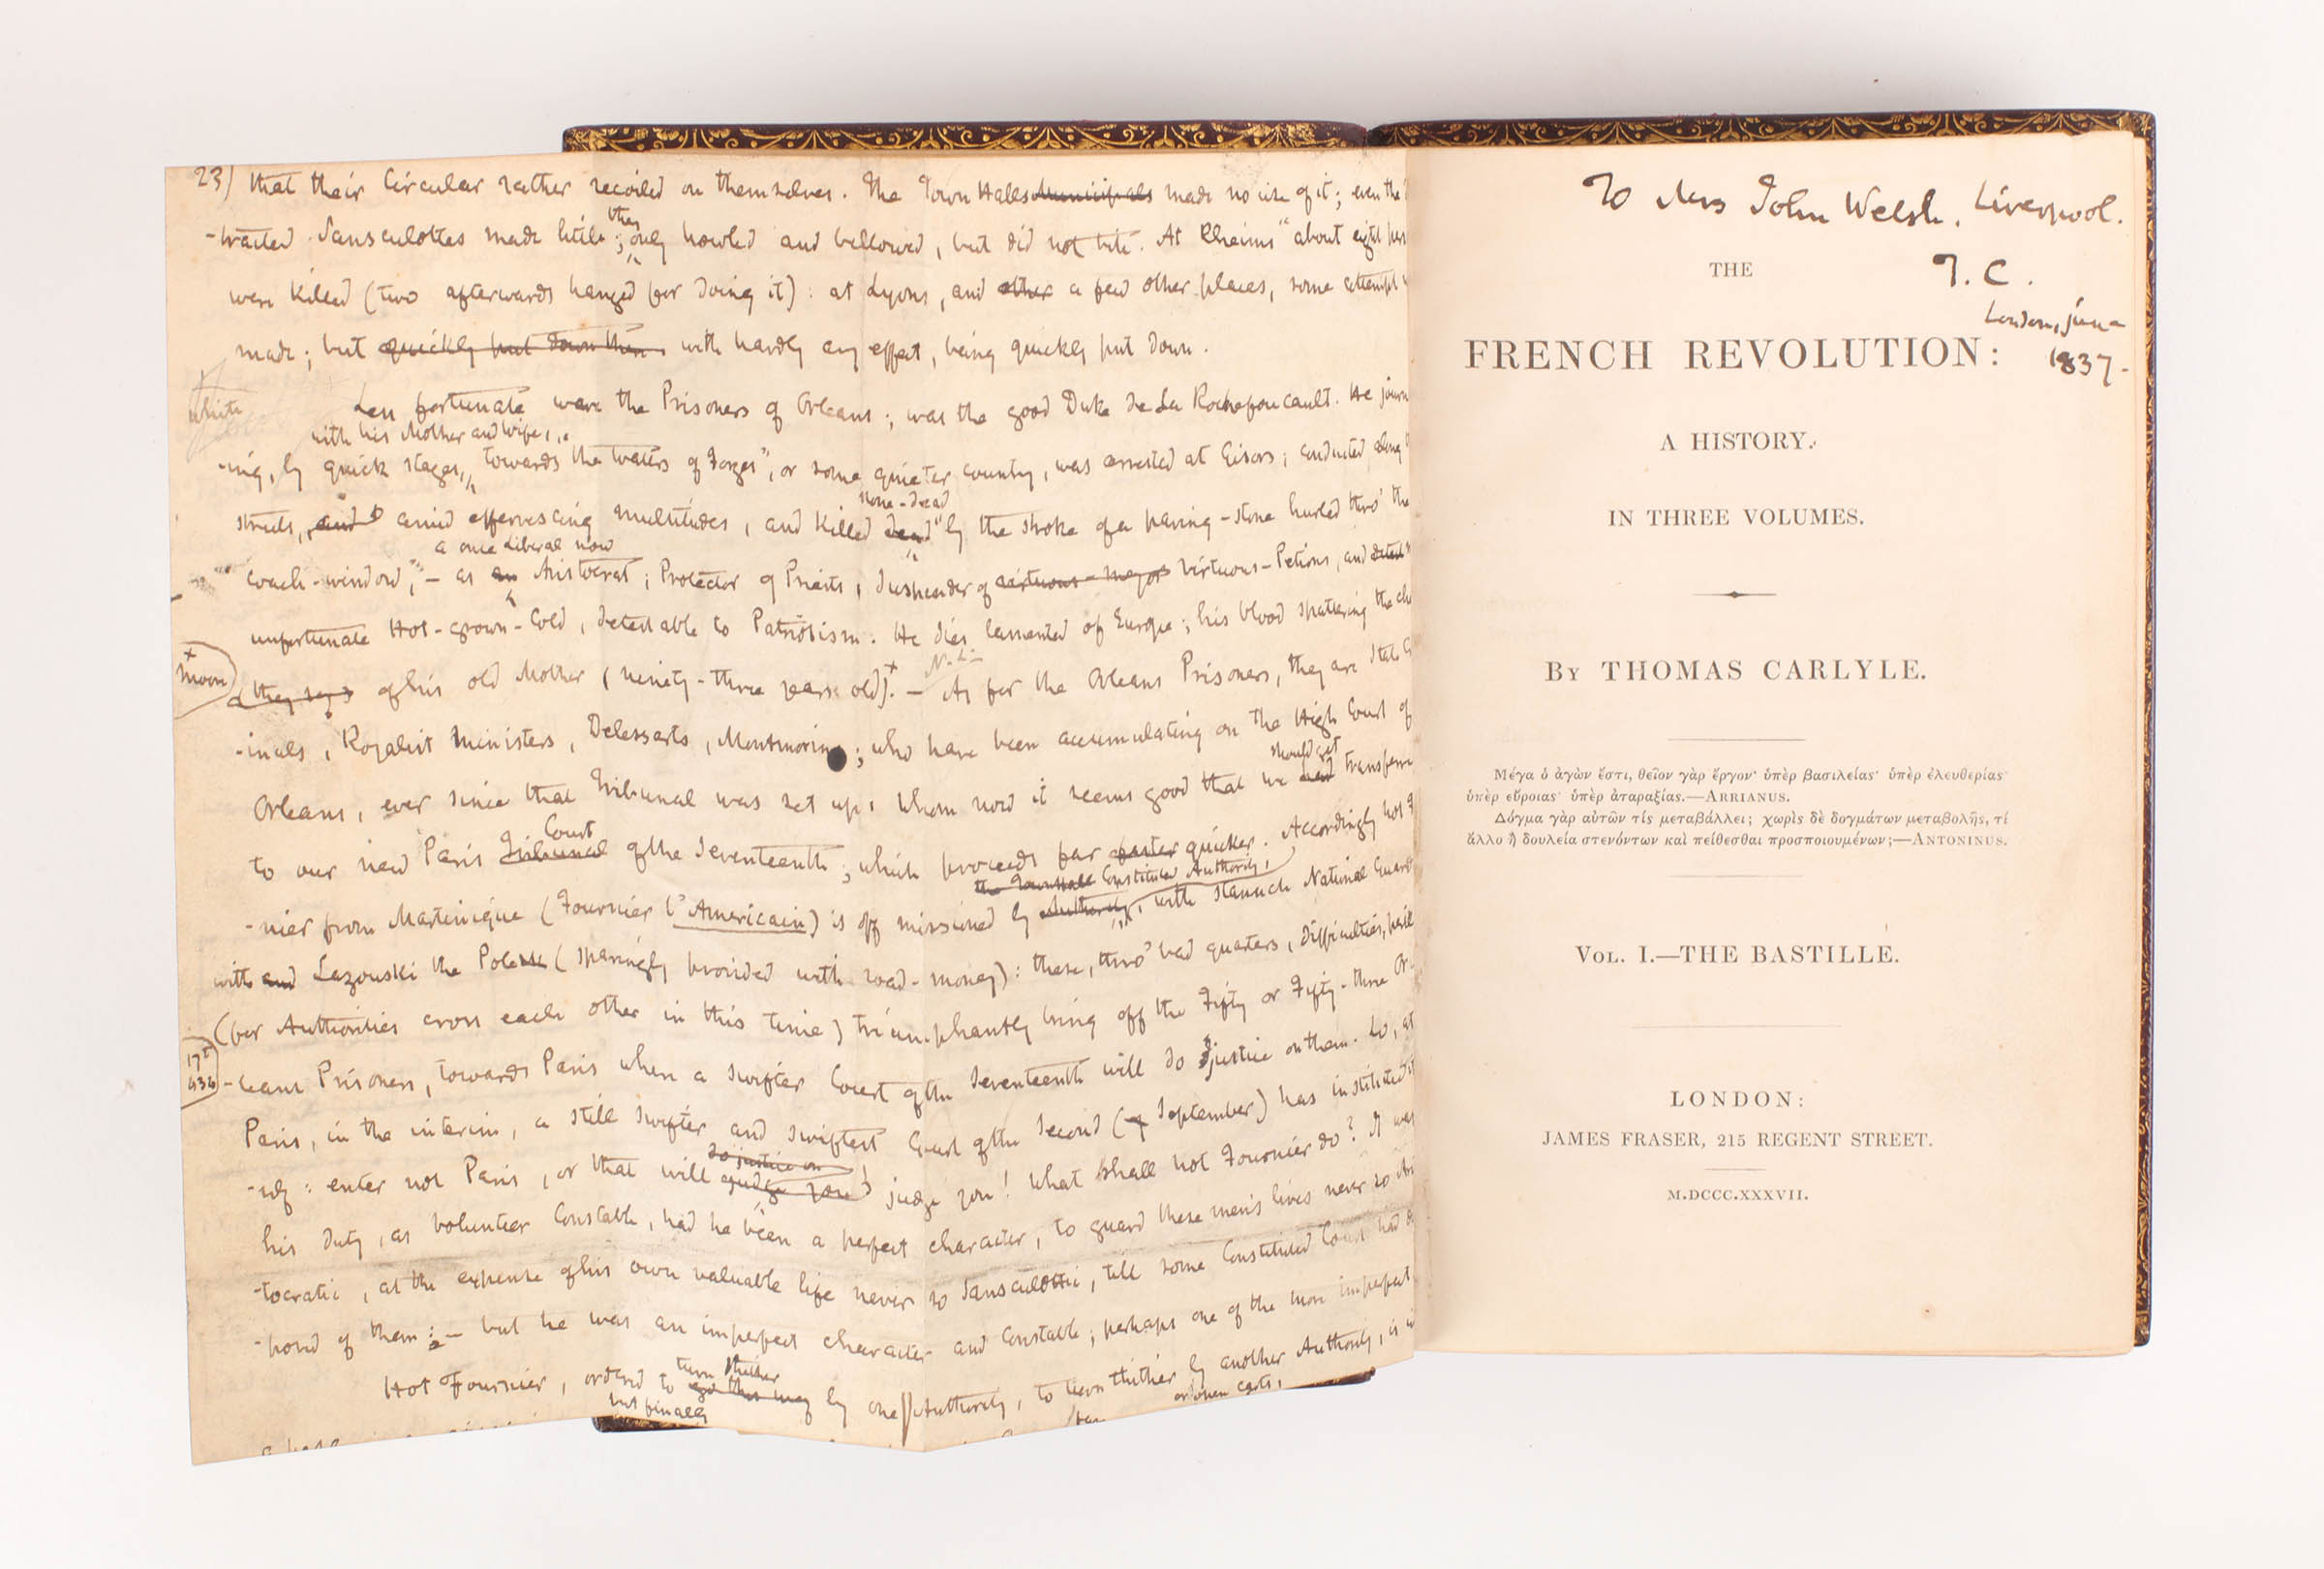 23) that their Circular rather recoiled on themselves. The Town Halls Municipals made no use of it; even the
-tracted Sansculottes made little; they only howled and bellowed, but did not bite. At Rheims "about eight pers
were killed (two afterwards hanged for doing it): at Lyons, and other a few other places, some attempt
made; but quickly put down then with hardly any effect, being quickly put down.
white
Less fortunate were the Prisoners of Orleans; was the good Duke de La Rochefoucault. He journ
with his Mother and Wife,
-ing, by quick stages, "towards the waters of Forges", or some quieter country, was arrested at Gisors; conducted along
stone-dead
streets, and amid effervescing multitudes, and killed dead "by the stroke of a paving-stone hurled thro' the
a once Liberal now
coach-window," – as an Aristocrat; Protector of Priests, Suspender of virtuous-mayor Virtuous-Petions, and
unfortunate Hot-grown-Cold, detestable to Patriotism. He dies lamented of Europe; his blood spattering the ch
Moore
they say of his old Mother (ninety-three years old). – As for the Orleans Prisoners, they are State C
-inals, Royalist Ministers, Delessarts, Montmorins; who have been accumulating on the High Court of
should get
Orleans, ever since that Tribunal was set up: Whom now it seems good that we had transferre
Court
to our new Paris Tribunal of the Seventeenth; which proceeds far faster quicker. Accordingly hot F
the Townhall Constituted Authority,
-nier from Martinique (Fournier l'Americain) is off missioned by Authority, with staunch National Guard
with and Lazouski the Pole (sparingly provided with road-money): these, thro' bad quarters, difficulties, peril
(for Authorities cross each other in this time) triumphantly bring off the Fifty or Fifty-three Or-
-leans Prisoners, towards Paris where a swifter Court of the Seventeenth will do justice on them. Lo, at
Paris, in the interim, a still swifter and swiftest Court of the Second (of September) has instituted it
do justice on
-self: enter not Paris, or that will judge you judge you! What shall hot Fournier do? It was
his duty, as volunteer Constable, had he been a perfect character, to guard these men's lives never so Aris
-tocratic, at the expense of his own valuable life never so Sansculottic, till some Constituted Court had dis
-posed of them: – but he was an imperfect character and Constable; perhaps one of the more imperfect
turn thither
Hot Fournier, ordered to go this way by one Authority, to turn thither by another Authority, is in
but finally
or open carts,
To Mrs John Welsh, Liverpool.
T. C.
London, June
1837 –
THE
FRENCH REVOLUTION:
A HISTORY.
IN THREE VOLUMES.
BY THOMAS CARLYLE.
Μέγα ὁ ἀγὼν ἔστι, θεῖον γὰρ ἔργον· ὑπὲρ βασιλείας· ὑπὲρ ἐλευθερίας·
ὑπὲρ εὔροιας· ὑπὲρ ἀταραξίας.—ARRIANUS.
Δόγμα γὰρ αὐτῶν τίς μεταβάλλει; χωρὶς δὲ δογμάτων μεταβολῆς, τί
ἄλλο ἢ δουλεία στενόντων καὶ πείθεσθαι προσποιουμένων;—ANTONINUS.
VOL. I.—THE BASTILLE.
LONDON:
JAMES FRASER, 215 REGENT STREET.
M.DCCC.XXXVII.